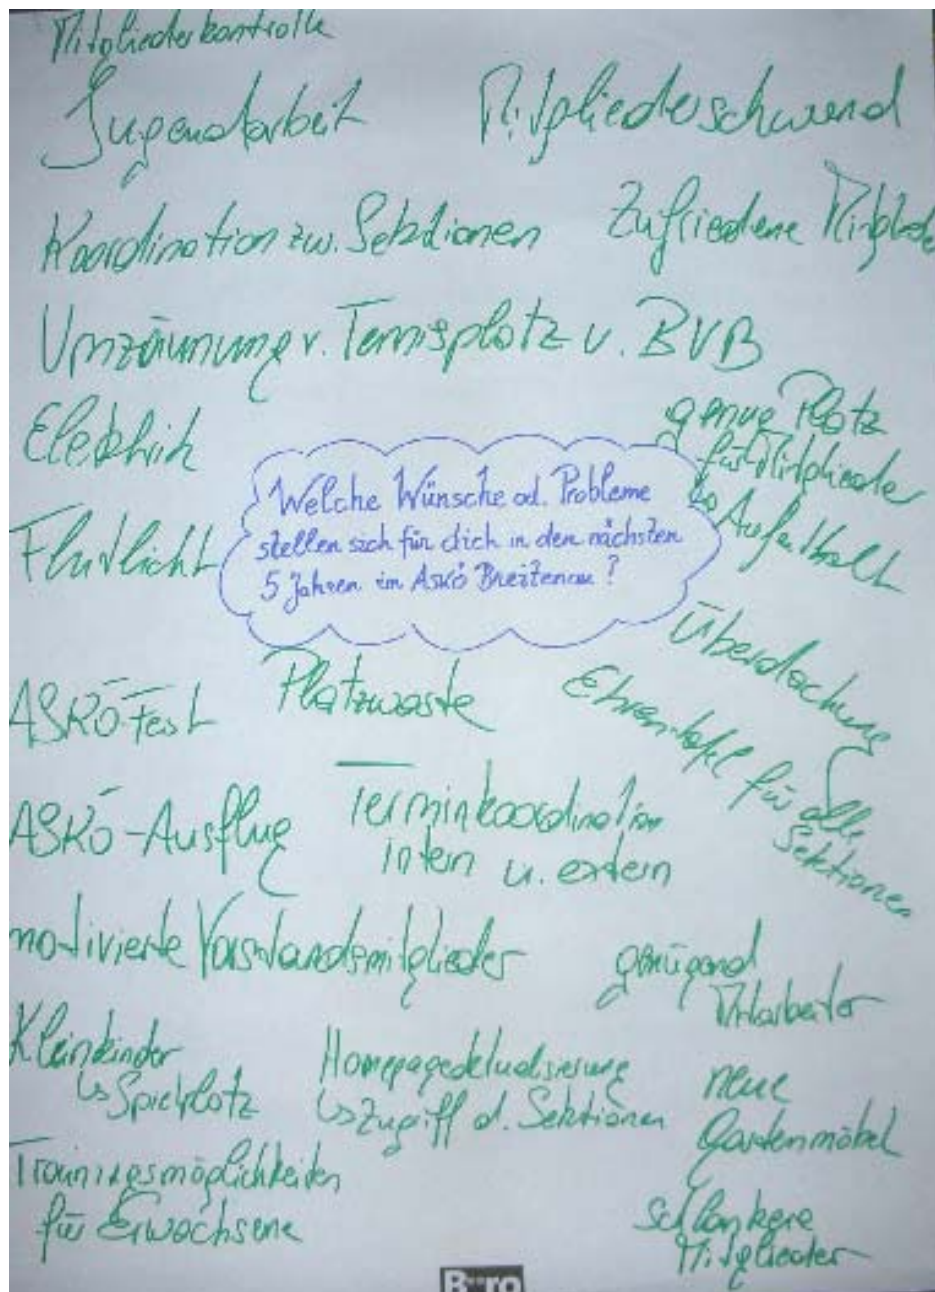 Mitgliederkontrolle
Jugendarbeit
Mitgliederschwund
Koordination zw. Sektionen
Zufriedene Mitgliede
Umzäunung v. Tennisplatz u. BVB
Elektrik
genug Platz
für Mitglieder
↳ Aufenthalt
Welche Wünsche od. Probleme
stellen sich für dich in den nächsten
5 Jahren im Askö Breitenau?
Flutlicht
Überdachung
ASKÖ-Fest
Platzwarte
Ehrentafel für alle
Sektionen
ASKÖ-Ausflug
Terminkoordination
intern u. extern
motivierte Vorstandsmitglieder
genügend
Mitarbeiter
Kleinkinder
↳ Spielplatz
Homepageaktualisierung
↳ Zugriff d. Sektionen
neue
Gartenmöbel
Trainingsmöglichkeiten
für Erwachsene
schlankere
Mitglieder